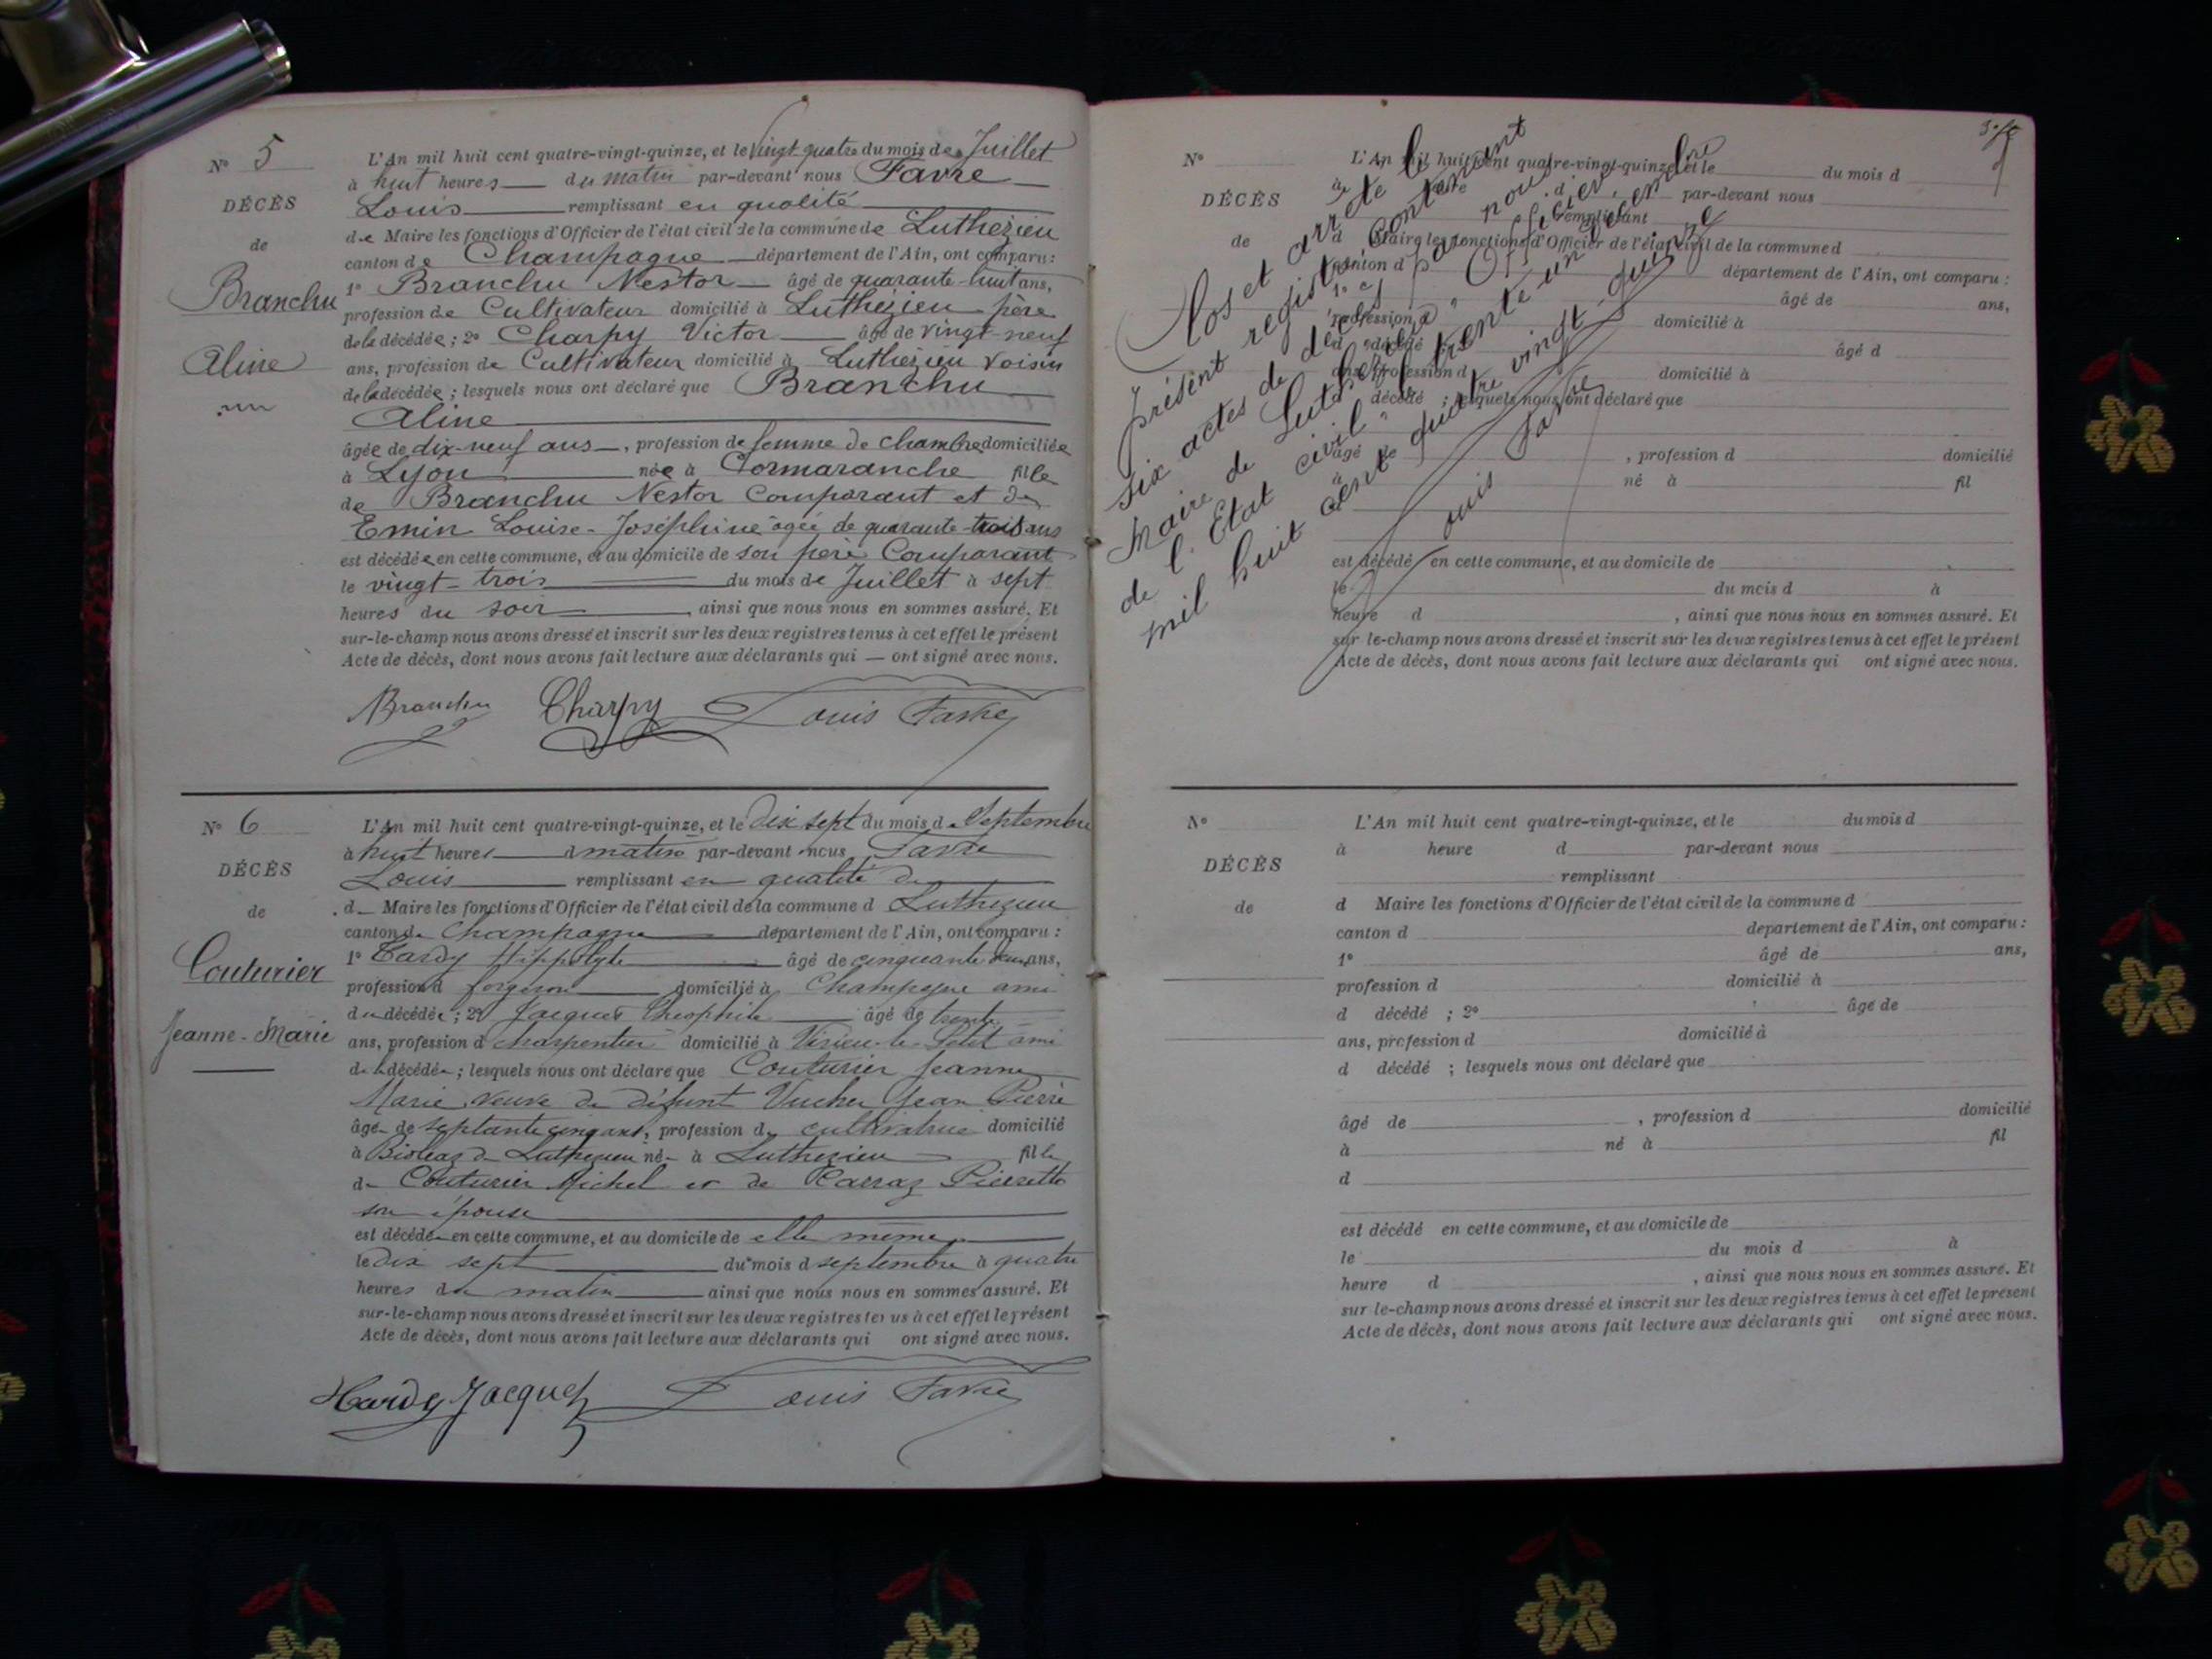 Nº 5
DÉCÈS
de
Branchu
Aline
L'An mil huit cent quatre-vingt-quinze, et le Vingt quatre du mois de Juillet
à huit heures du matin par-devant nous Favre
Louis remplissant en qualité
de Maire les fonctions d'Officier de l'état civil de la commune de Luthezieu
canton de Champagne département de l'Ain, ont comparu :
1º Branchu Nestor âgé de quarante-huit ans,
profession de Cultivateur domicilié à Luthezieu père
de la décédée ; 2º Charpy Victor âgé de vingt-neuf
ans, profession de Cultivateur domicilié à Luthezieu voisin
de la décédée ; lesquels nous ont déclaré que Branchu
Aline
âgée de dix-neuf ans, profession de femme de chambre domiciliée
à Lyon née à Cormaranche fille
de Branchu Nestor Comparant et de
Emin Louise-Joséphine âgée de quarante-trois ans
est décédée en cette commune, et au domicile de son père Comparant
le vingt-trois du mois de Juillet à sept
heures du soir, ainsi que nous nous en sommes assuré. Et
sur-le-champ nous avons dressé et inscrit sur les deux registres tenus à cet effet le présent
Acte de décès, dont nous avons fait lecture aux déclarants qui — ont signé avec nous.
Branchu Charpy Louis Favre
Nº 6
DÉCÈS
de
Couturier
Jeanne-Marie
L'An mil huit cent quatre-vingt-quinze, et le dix sept du mois d Septembre
à huit heures d matin par-devant nous Favre
Louis remplissant en qualité de
d Maire les fonctions d'Officier de l'état civil de la commune d Luthezieu
canton de Champagne département de l'Ain, ont comparu :
1º Tardy Hippolyte âgé de cinquante deux ans,
profession d forgeron domicilié à Champagne ami
du décédé ; 2º Jacques Théophile âgé de trente
ans, profession d charpentier domicilié à Virieu-le-Petit ami
de la décédée ; lesquels nous ont déclaré que Couturier Jeanne
Marie veuve de défunt Vucher Jean Pierre
âgé de septante cinq ans, profession de cultivatrice domicilié
à Bioleaz de Luthezieu né à Luthezieu fille
de Couturier Michel et de Carraz Pierrette
son épouse
est décédée en cette commune, et au domicile de elle même
le dix sept du mois d septembre à quatre
heures du matin ainsi que nous nous en sommes assuré. Et
sur-le-champ nous avons dressé et inscrit sur les deux registres tenus à cet effet le présent
Acte de décès, dont nous avons fait lecture aux déclarants qui ont signé avec nous.
Hardy Jacques Louis Favre
Clos et arrêté le
présent registre contenant
six actes de décès par nous
Maire de Luthezieu Officier
de l'Etat civil le trente-un décembre
mil huit cent quatre vingt-quinze
Louis Favre
Nº
DÉCÈS
de
L'An mil huit cent quatre-vingt-quinze, et le du mois d
à heure d par-devant nous
remplissant
d Maire les fonctions d'Officier de l'état civil de la commune d
canton d département de l'Ain, ont comparu :
1º âgé de ans,
profession d domicilié à
d décédé ; 2º âgé d
ans, profession d domicilié à
d décédé ; lesquels nous ont déclaré que
âgé de , profession d domicilié
à né à fil
d
est décédé en cette commune, et au domicile de
le du mois d à
heure d , ainsi que nous nous en sommes assuré. Et
sur-le-champ nous avons dressé et inscrit sur les deux registres tenus à cet effet le présent
Acte de décès, dont nous avons fait lecture aux déclarants qui ont signé avec nous.
Nº
DÉCÈS
de
L'An mil huit cent quatre-vingt-quinze, et le du mois d
à heure d par-devant nous
remplissant
d Maire les fonctions d'Officier de l'état civil de la commune d
canton d département de l'Ain, ont comparu :
1º âgé de ans,
profession d domicilié à
d décédé ; 2º âgé de
ans, profession d domicilié à
d décédé ; lesquels nous ont déclaré que
âgé de , profession d domicilié
à né à fil
d
est décédé en cette commune, et au domicile de
le du mois d à
heure d , ainsi que nous nous en sommes assuré. Et
sur le-champ nous avons dressé et inscrit sur les deux registres tenus à cet effet le présent
Acte de décès, dont nous avons fait lecture aux déclarants qui ont signé avec nous.